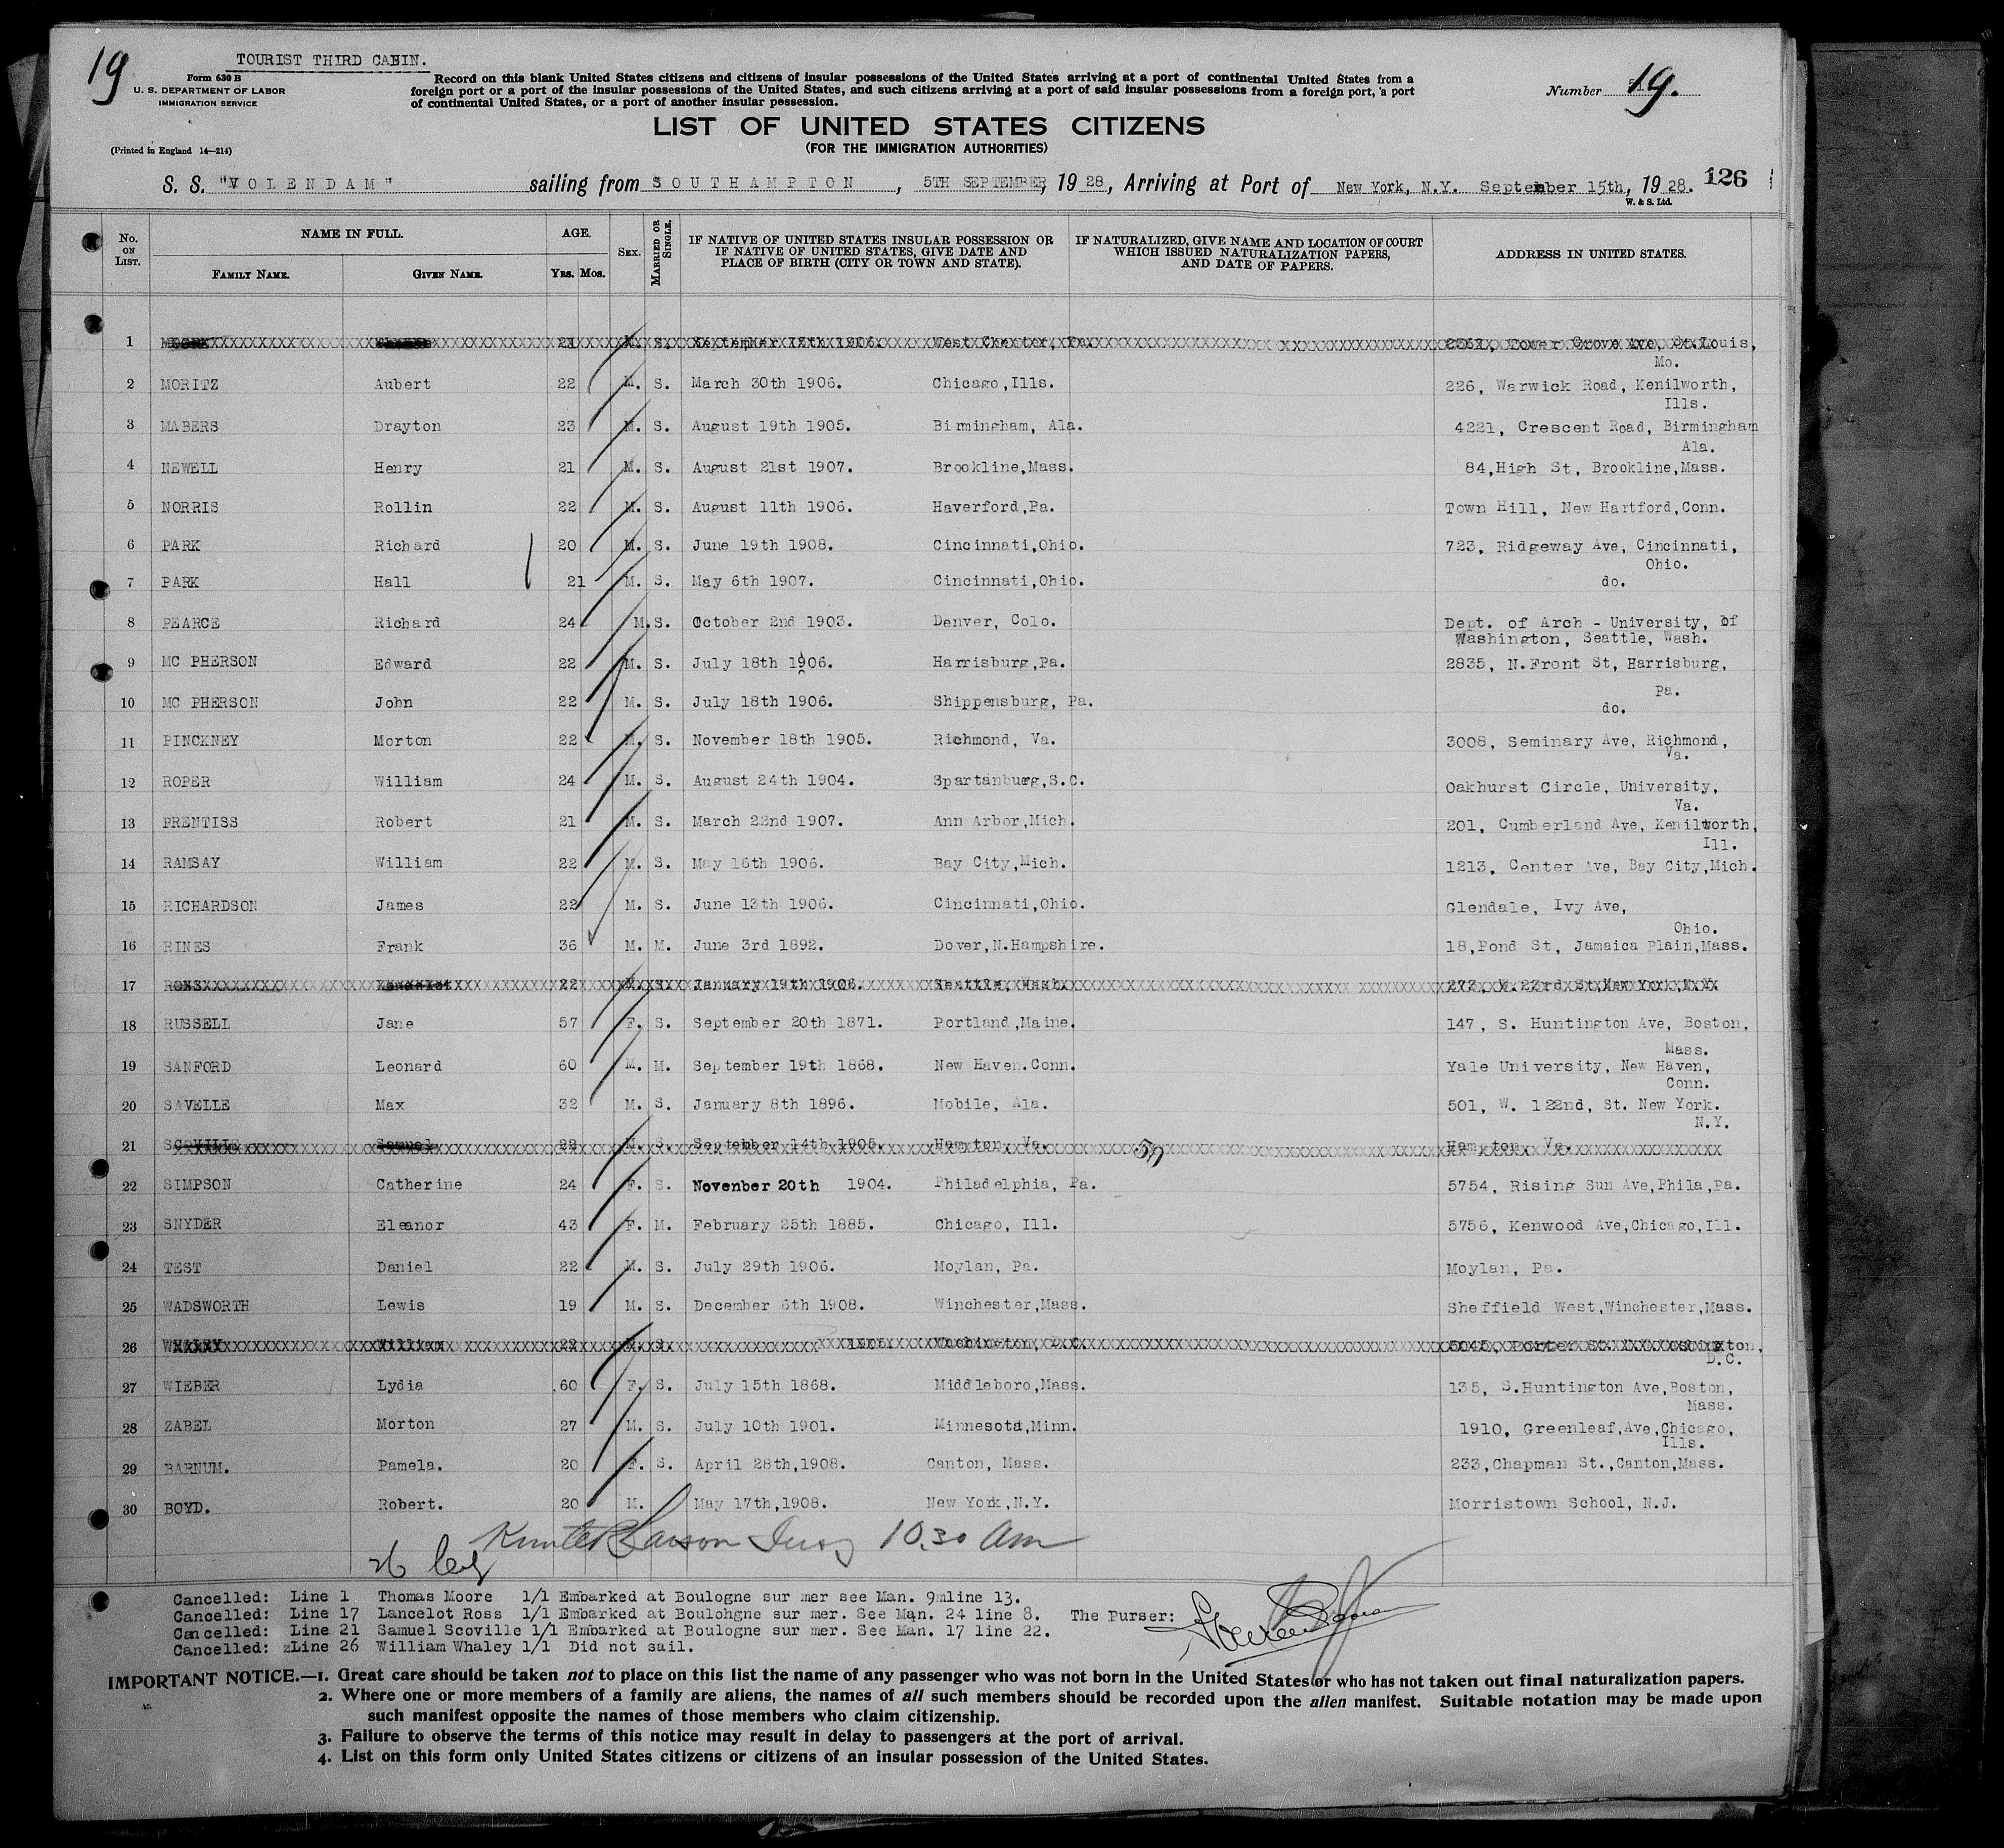 19
TOURIST THIRD CABIN.
Form 630 B
U. S. DEPARTMENT OF LABOR
IMMIGRATION SERVICE
(Printed in England 14—214)
Record on this blank United States citizens and citizens of insular possessions of the United States arriving at a port of continental United States from a
foreign port or a port of the insular possessions of the United States, and such citizens arriving at a port of said insular possessions from a foreign port, a port
of continental United States, or a port of another insular possession.
Number 19.
LIST OF UNITED STATES CITIZENS
(FOR THE IMMIGRATION AUTHORITIES)
S. S. "VOLENDAM" sailing from SOUTHAMPTON, 5TH SEPTEMBER, 1928, Arriving at Port of New York, N.Y. September 15th, 1928. 126
W. & S. Ltd.
No. ON LIST. NAME IN FULL. FAMILY NAME. GIVEN NAME. AGE. YRS. MOS. SEX. MARRIED OR SINGLE. IF NATIVE OF UNITED STATES INSULAR POSSESSION OR IF NATIVE OF UNITED STATES, GIVE DATE AND PLACE OF BIRTH (CITY OR TOWN AND STATE). IF NATURALIZED, GIVE NAME AND LOCATION OF COURT WHICH ISSUED NATURALIZATION PAPERS, AND DATE OF PAPERS. ADDRESS IN UNITED STATES.
1 21 M. S. September 15th 1906. West Chester, Pa. Tower Grove Ave, St.Louis,
Mo.
2 MORITZ Aubert 22 M. S. March 30th 1906. Chicago,Ills. 226, Warwick Road, Kenilworth,
Ills.
3 MABERS Drayton 23 M. S. August 19th 1905. Birmingham, Ala. 4221, Crescent Road, Birmingham
Ala.
4 NEWELL Henry 21 M. S. August 21st 1907. Brookline,Mass. 84,High St, Brookline,Mass.
5 NORRIS Rollin 22 M. S. August 11th 1906. Haverford,Pa. Town Hill, New Hartford,Conn.
6 PARK Richard 20 M. S. June 19th 1908. Cincinnati,Ohio. 723, Ridgeway Ave, Cincinnati,
Ohio.
7 PARK Hall 21 M. S. May 6th 1907. Cincinnati,Ohio. do.
8 PEARCE Richard 24 M. S. October 2nd 1903. Denver, Colo. Dept. of Arch - University, of
Washington, Seattle, Wash.
9 MC PHERSON Edward 22 M. S. July 18th 1906. Harrisburg,Pa. 2835, N.Front St, Harrisburg,
Pa.
10 MC PHERSON John 22 M. S. July 18th 1906. Shippensburg, Pa. do.
11 PINCKNEY Morton 22 M. S. November 18th 1905. Richmond, Va. 3008, Seminary Ave, Richmond,
Va.
12 ROPER William 24 M. S. August 24th 1904. Spartanburg,S.C. Oakhurst Circle, University,
Va.
13 PRENTISS Robert 21 M. S. March 22nd 1907. Ann Arbor,Mich. 201, Cumberland Ave, Kenilworth,
Ill.
14 RAMSAY William 22 M. S. May 16th 1906. Bay City,Mich. 1213, Center Ave, Bay City,Mich.
15 RICHARDSON James 22 M. S. June 13th 1906. Cincinnati,Ohio. Glendale, Ivy Ave,
Ohio.
16 RINES Frank 36 M. M. June 3rd 1892. Dover,N.Hampshire. 18,Pond St, Jamaica Plain,Mass.
17 ROSS Lancelot 22 M. S. January 19th 1906. Seattle, Wash. 272, W.23rd St,New York,N.Y.
18 RUSSELL Jane 57 F. S. September 20th 1871. Portland,Maine. 147, S. Huntington Ave, Boston,
Mass.
19 SANFORD Leonard 60 M. M. September 19th 1868. New Haven.Conn. Yale University, New Haven,
Conn.
20 SAVELLE Max 32 M. S. January 8th 1896. Mobile, Ala. 501, W. 122nd, St. New York.
N.Y.
21 SCOVILLE Samuel 22 M. S. September 14th 1905. Hampton, Va. Hampton, Va.
22 SIMPSON Catherine 24 F. S. Novenber 20th 1904. Philadelphia, Pa. 5754, Rising Sun Ave,Phila,Pa.
23 SNYDER Eleanor 43 F. M. February 25th 1885. Chicago, Ill. 5756, Kenwood Ave,Chicago,Ill.
24 TEST Daniel 22 M. S. July 29th 1906. Moylan, Pa. Moylan, Pa.
25 WADSWORTH Lewis 19 M. S. December 6th 1908. Winchester,Mass. Sheffield West,Winchester,Mass.
26 WHALEY William 22 M. S. Washington, D.C. Porter St.
D.C.
27 WIEBER Lydia 60 F. S. July 15th 1868. Middleboro,Mass. 135, S.Huntington Ave,Boston,
Mass.
28 ZABEL Morton 27 M. S. July 10th 1901. Minnesota,Minn. 1910, Greenleaf,Ave,Chicago,
Ills.
29 BARNUM. Pamela. 20 F. S. April 28th,1908. Canton, Mass. 233,Chapman St.,Canton,Mass.
30 BOYD. Robert. 20 M. May 17th,1908. New York,N.Y. Morristown School, N.J.
10.30 am
26
Cancelled: Line 1 Thomas Moore 1/1 Embarked at Boulogne sur mer see Man. 9mline 13.
Cancelled: Line 17 Lancelot Ross 1/1 Embarked at Boulohgne sur mer. See Man. 24 line 8. The Purser:
Cancelled: Line 21 Samuel Scoville 1/1 Embarked at Boulogne sur mer. See Man. 17 line 22.
Cancelled: zLine 26 William Whaley 1/1 Did not sail.
IMPORTANT NOTICE.—1. Great care should be taken not to place on this list the name of any passenger who was not born in the United States or who has not taken out final naturalization papers.
2. Where one or more members of a family are aliens, the names of all such members should be recorded upon the alien manifest. Suitable notation may be made upon
such manifest opposite the names of those members who claim citizenship.
3. Failure to observe the terms of this notice may result in delay to passengers at the port of arrival.
4. List on this form only United States citizens or citizens of an insular possession of the United States.